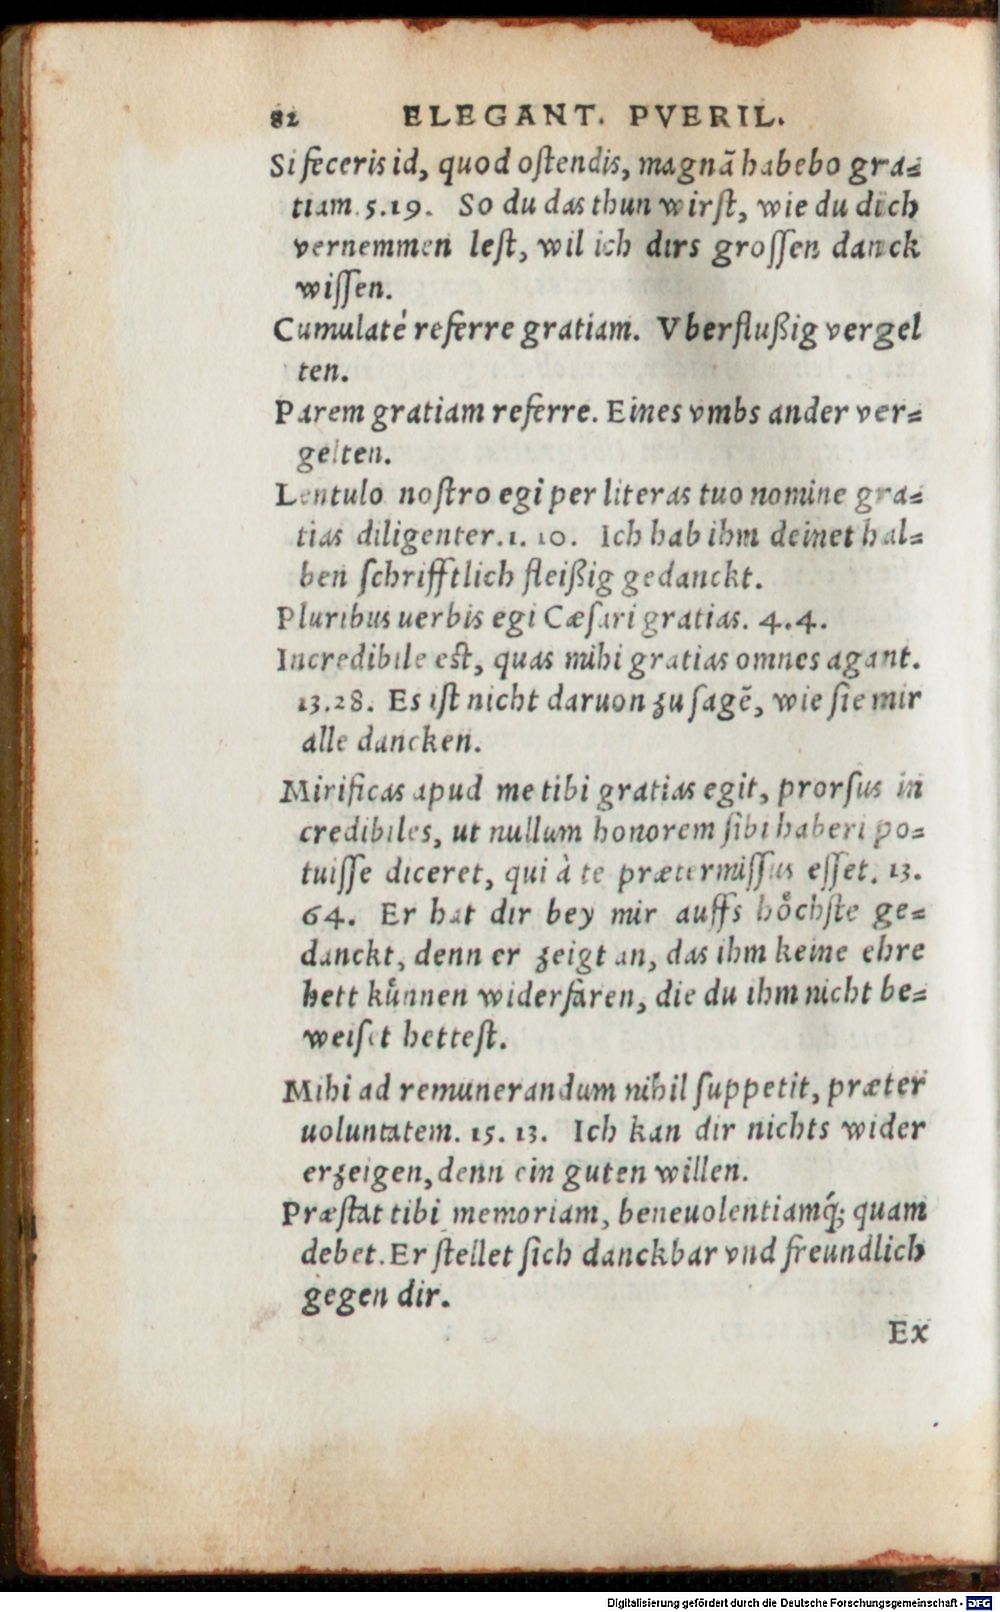 82 ELEGANT. PVERIL.
Si feceris id, quod oſtendis, magnā habebo gra⸗
tiam. 5.19. So du das thun wirſt, wie du dich
vernemmen leſt, wil ich dirs groſſen danck
wiſſen.
Cumulaté referre gratiam. Vberflußig vergel
ten.
Parem gratiam referre. Eines vmbs ander ver⸗
gelten.
Lentulo noſtro egi per literas tuo nomine gra⸗
tias diligenter. 1. 10. Ich hab ihm deinet hal⸗
ben ſchrifftlich fleißig gedanckt.
Pluribus uerbis egi Cæſari gratias. 4.4.
Incredibile eſt, quas mihi gratias omnes agant.
13.28. Es iſt nicht daruon zu ſagē, wie ſie mir
alle dancken.
Mirificas apud me tibi gratias egit, prorſus in
credibiles, ut nullum honorem ſibi haberi po⸗
tuiſſe diceret, qui à te prætermiſſus eſſet. 13.
64. Er hat dir bey mir auffs hoͤchſte ge⸗
danckt, denn er zeigt an, das ihm keine ehre
hett kuͤnnen widerfaren, die du ihm nicht be⸗
weiſet hetteſt.
Mihi ad remunerandum nihil ſuppetit, præter
uoluntatem. 15. 13. Ich kan dir nichts wider
erzeigen, denn ein guten willen.
Præſtat tibi memoriam, beneuolentiamq́; quam
debet. Er ſtellet ſich danckbar vnd freundlich
gegen dir.
Ex
Digitalisierung gefördert durch die Deutsche Forschungsgemeinschaft - DFG